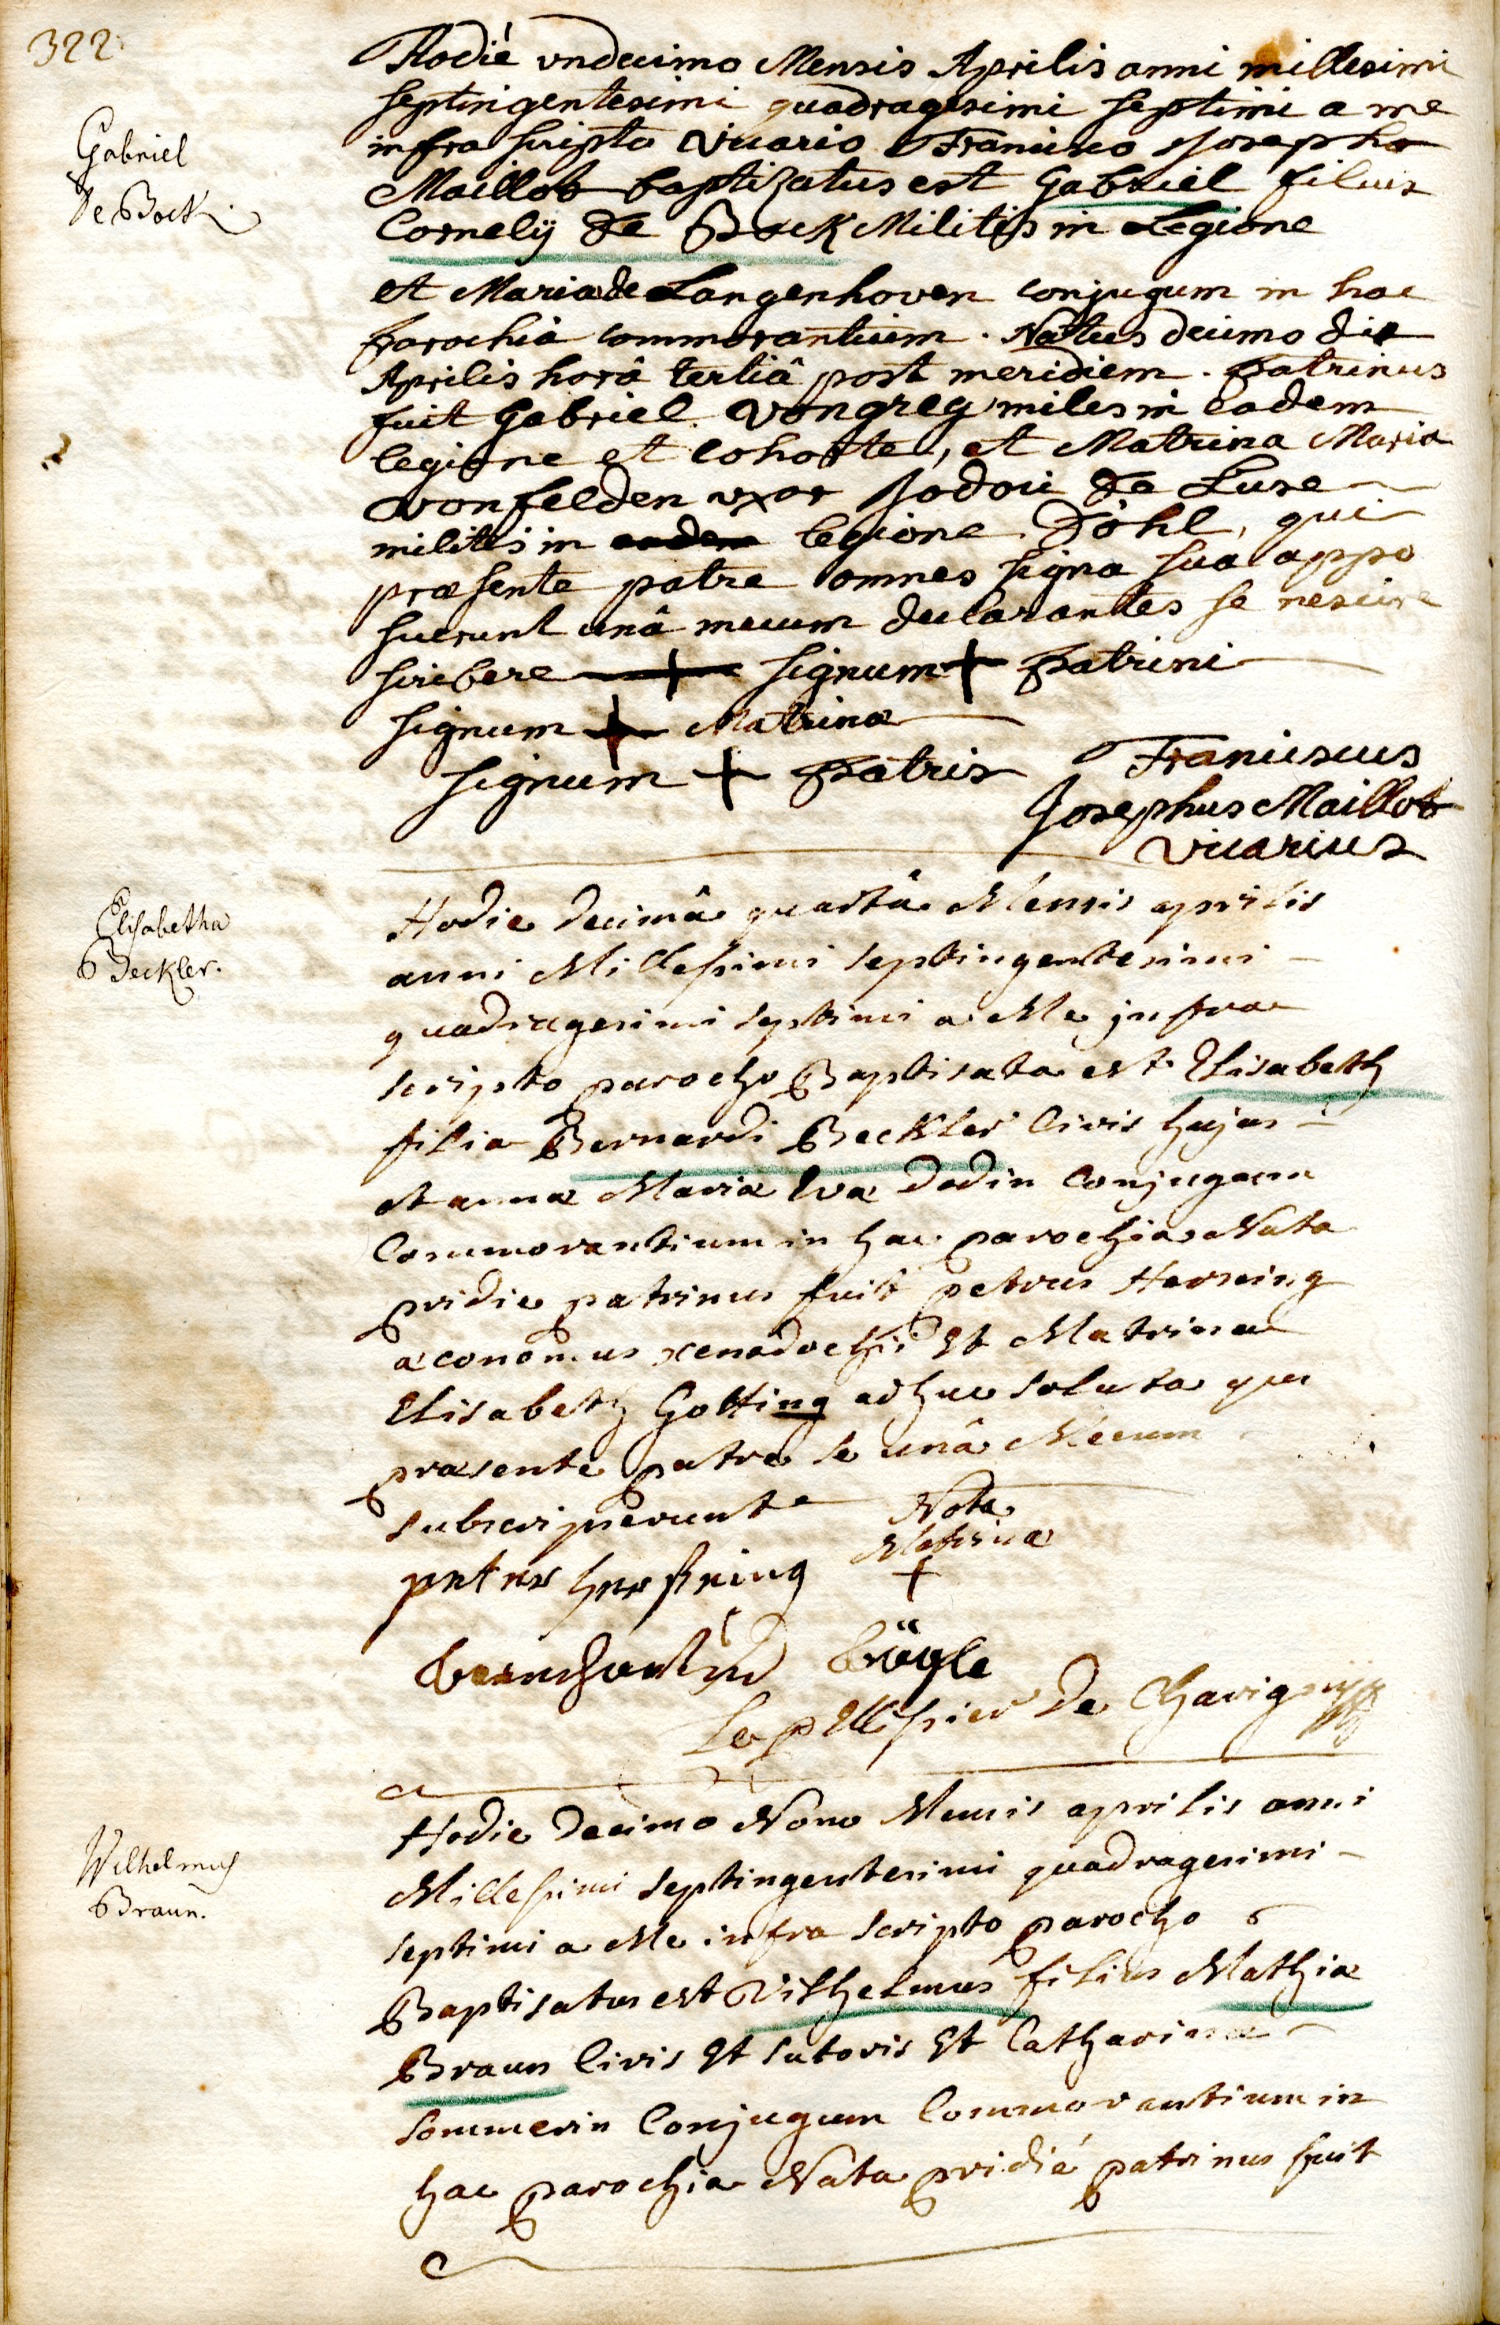 322.
Gabriel
de Bock.
Hodie undecimo Mensis Aprilis anni millesimi
septingentesimi quadragesimi septimi a me
infra scripto vicario Francisco Josepho
Maillot baptizatus est Gabriel filius
Cornelij de Bock Militis in Legione
et Maria de Langenhoven conjugum in hac
parochiâ commorantium. Natus decimo die
Aprilis horâ tertiâ post meridiem. patrinus
fuit Gabriel vongreg miles in eadem
legione et cohorte, et Matrina Maria
vonfelden uxor Jodoci de Luse
militis in eadem legione Döhl, qui
praesente patre omnes signa sua appo
suerunt unâ mecum declarantes se nescire
scribere + signum + patrini
signum + Matrinae
signum + patris Franciscus
Josephus Maillot
vicarius
Elisabetha
Beckler.
Hodie decimâ quartâ Mensis aprilis
anni Millesimi septingentesimi
quadragesimi septimi a Me jnfra
scripto parocho Baptisata est Elisabeth
filia Bernardi Beckler Civis hujas
et annae Mariae Evae Dodin Conjugum
Commorantium in hac parochia Nata
pridie patrinus fuit petrus Hersing
aeconomus xenodochii Et Matrina
Elisabeth Gotting adhuc soluta qui
praesente patre se unâ Mecum
subscripserunt Nota
Matrinae
+
petter hersching
bernhard bögle
Le pellssier De Chavigny
Wilhelmus
Braun.
Hodie Decimo Nono Mensis aprilis anni
Millesimi septingentesimi quadragesimi
septimi a Me infra scripto parocho
Baptisatus est Vilhelmus filius Mathiae
Braun Civis Et sutoris Et Catharinae
sommerin Conjugum Commorantium in
hac parochia Nata pridié patrinus fuit